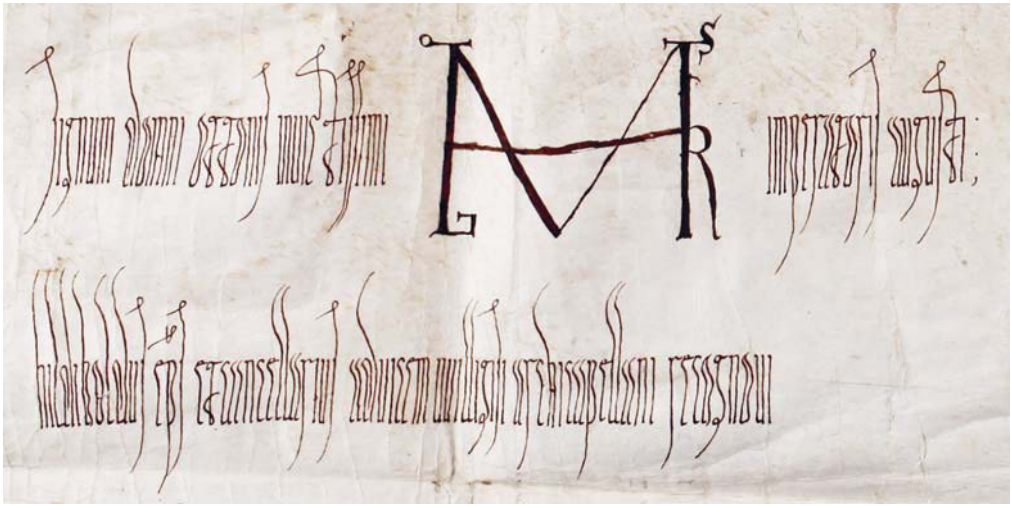 signum domni ottonis inuictissimi imperatoris augusti;
hildiboldus eps et cancellarius aduicem uuilligisi archicapellani recognoui